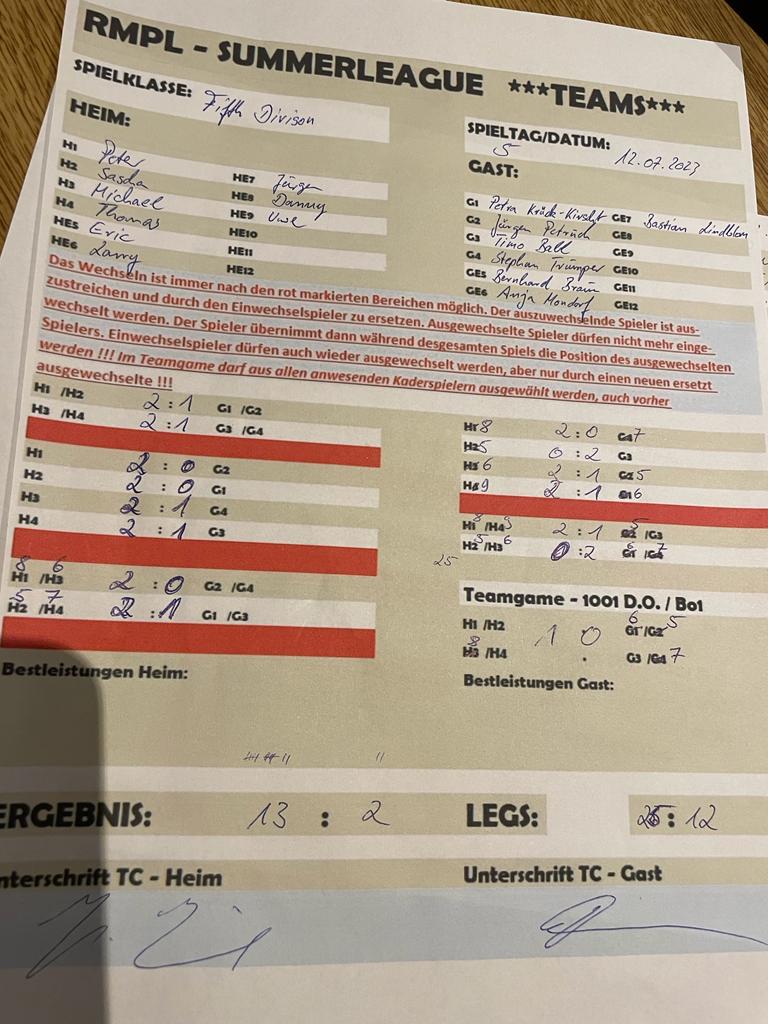 RMPL - SUMMERLEAGUE ***TEAMS***
SPIELKLASSE: Fifth Divison
SPIELTAG/DATUM:
5 12.07.2023
HEIM:
H1 Peter
H2 Sascha
H3 Michael
H4 Thomas
HE5 Eric
HE6 Larry
HE7 Jürgen
HE8 Danny
HE9 Uwe
HE10
HE11
HE12
GAST:
G1 Petra Krück-Kirscht
G2 Jürgen
G3 Timo Ball
G4 Stephan Trümper
GE5 Bernhard Braun
GE6 Anja Mondorf
GE7 Bastian Lindblom
GE8
GE9
GE10
GE11
GE12
Das Wechseln ist immer nach den rot markierten Bereichen möglich. Der auszuwechselnde Spieler ist aus-
zustreichen und durch den Einwechselspieler zu ersetzen. Ausgewechselte Spieler dürfen nicht mehr einge-
wechselt werden. Der Spieler übernimmt dann während desgesamten Spiels die Position des ausgewechselten
Spielers. Einwechselspieler dürfen auch wieder ausgewechselt werden, aber nur durch einen neuen ersetzt
werden !!! Im Teamgame darf aus allen anwesenden Kaderspielern ausgewählt werden, auch vorher
ausgewechselte !!!
H1 /H2 2 : 1 G1 /G2
H3 /H4 2 : 1 G3 /G4
H1 2 : 0 G2
H2 2 : 0 G1
H3 2 : 1 G4
H4 2 : 1 G3
8 6
H1 /H3 2 : 0 G2 /G4
5 7
H2 /H4 2 : 1 G1 /G3
H1 8 2 : 0 G4 7
H2 5 0 : 2 G3
H3 6 2 : 1 G2 5
H4 9 2 : 1 G1 6
8 9 5
H1 /H4 2 : 1 G2 /G3
5 6 6 7
H2 /H3 0 : 2 G1 /G4
25
Teamgame - 1001 D.O. / Bo1
6 5
H1 /H2 1 0 G1 /G2
8
H3 /H4 . G3 /G4 7
Bestleistungen Heim:
Bestleistungen Gast:
ERGEBNIS: 13 : 2
LEGS: 25 : 12
nterschrift TC - Heim
Unterschrift TC - Gast